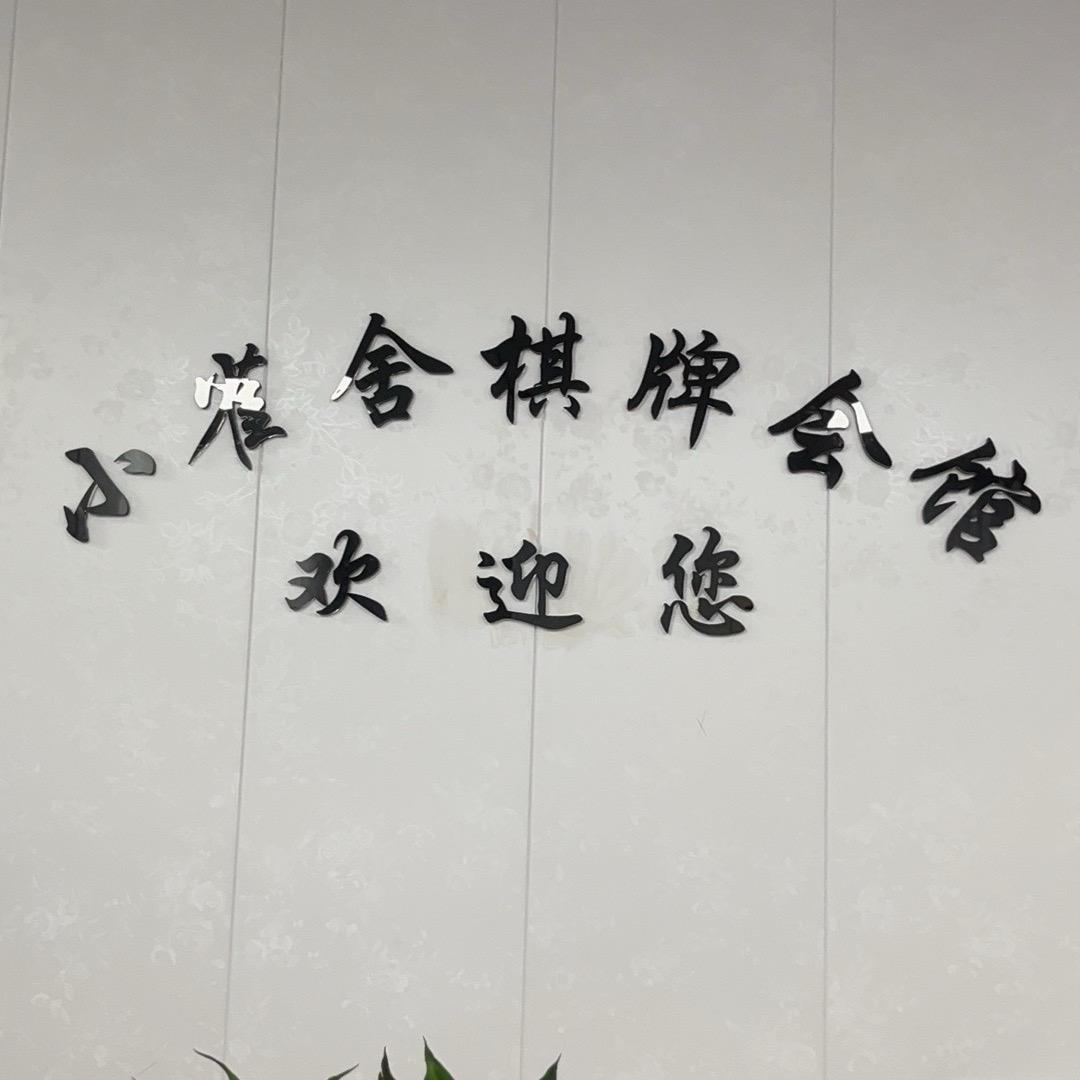 小舍棋牌会馆
欢迎您